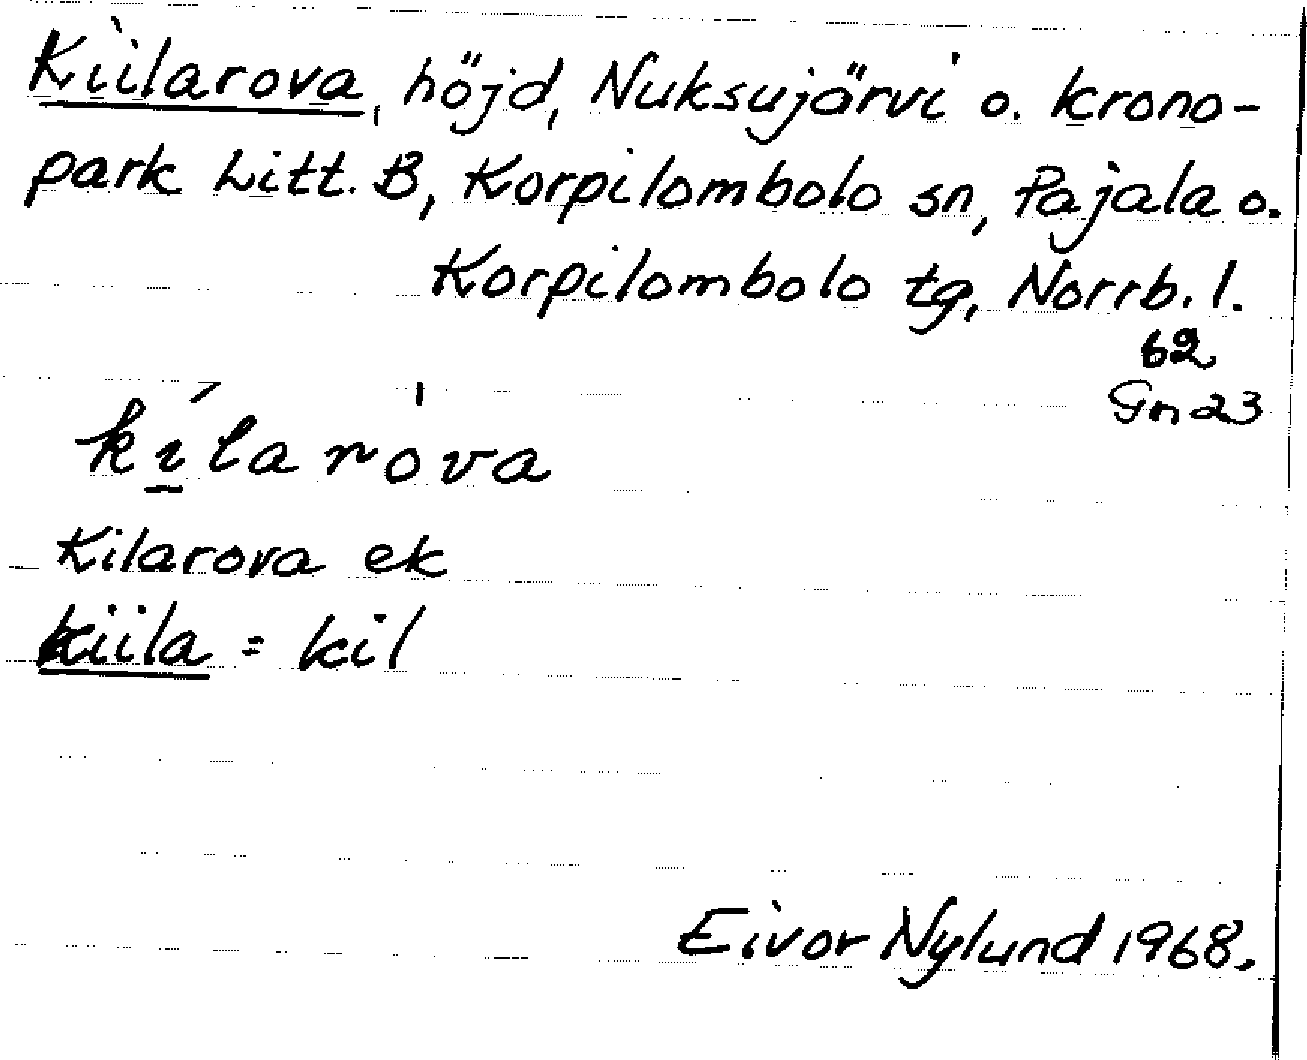 Kiilarova, höjd, Nuksujärvi o. krono-
park Litt. B, Korpilombolo sn, Pajala o.
Korpilombolo tg, Norrb. l.
62
Gn 23
kílaròva
Kilarova ek
kiila = kil
Eivor Nylund 1968.